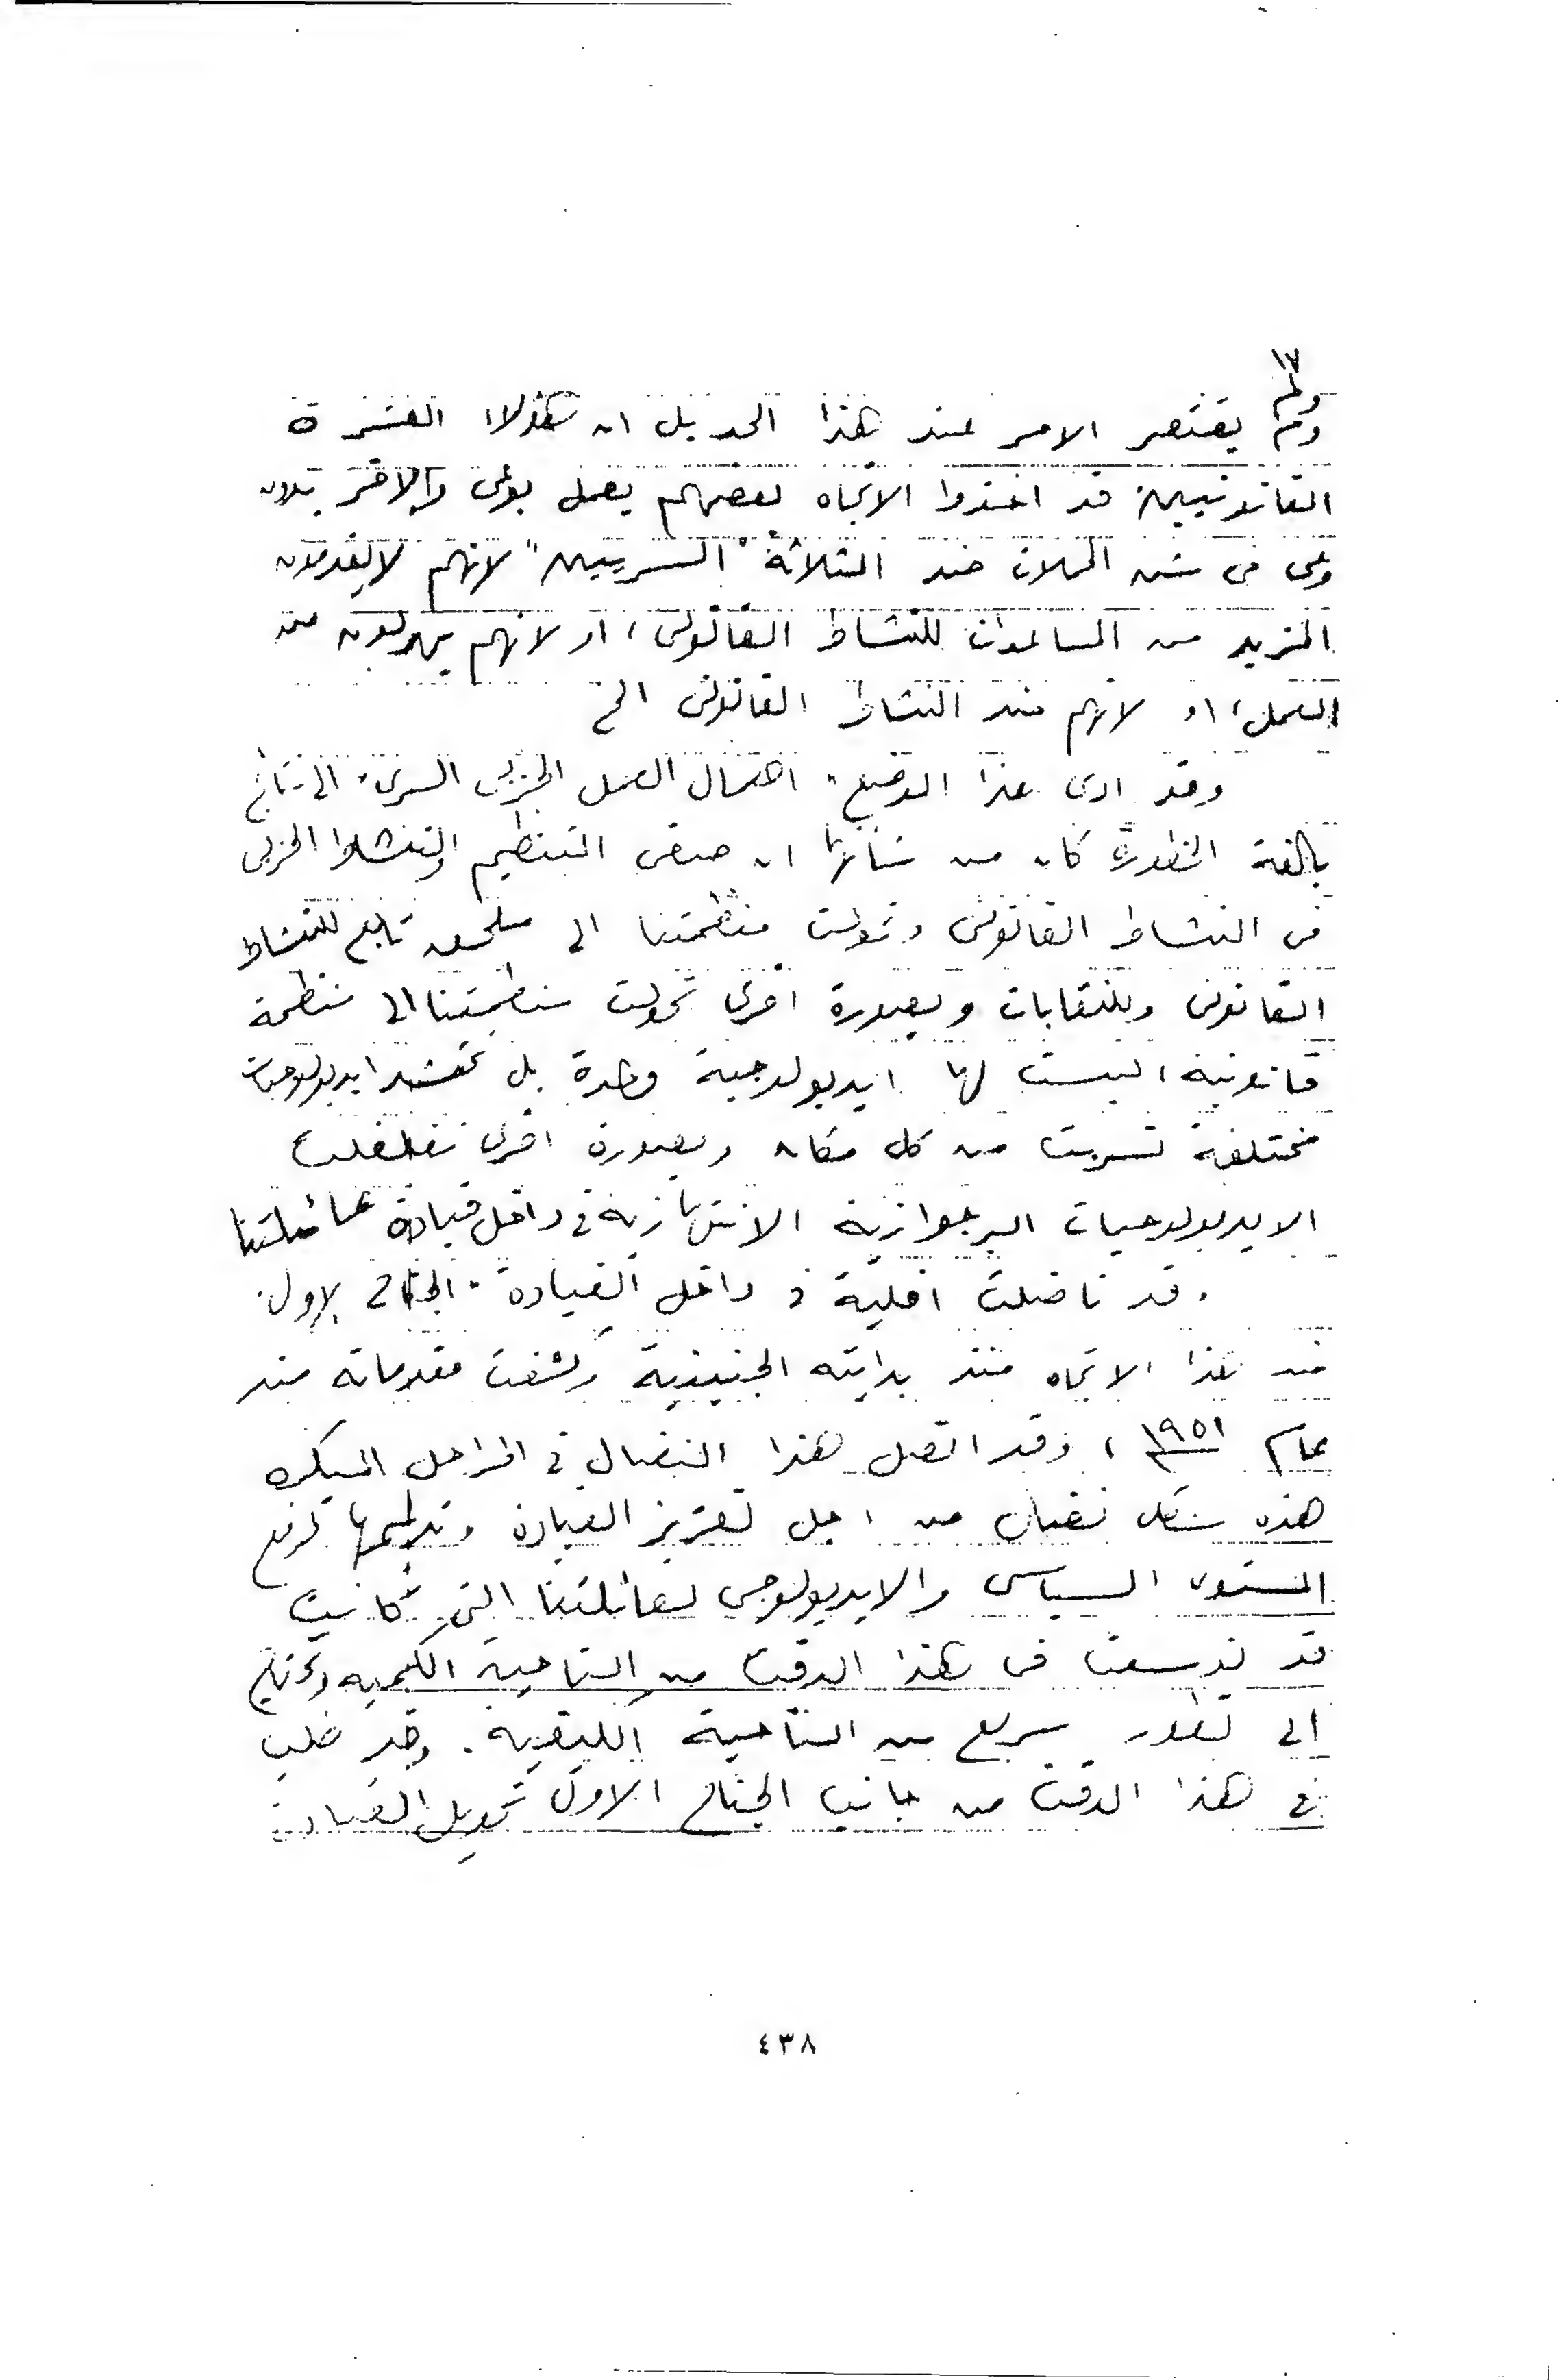 ١٧
ولم يقتصر الامر عند هذا الحد بل ان هؤلاء العشرة
القانونيين قد اخذوا الاتجاه بعضهم يعمل بوعى والاخر بدون
وعى فى شن الحملات ضد الثلاثة "السريين" لانهم لا يقدمون
المزيد من المساعدات للنشاط القانونى، او لانهم يهربون من
العمل، او لانهم ضد النشاط القانونى الخ
وقد ادى هذا الوضع "اهمال العمل الحزبى السرى" الى نتائج
بالغة الخطورة كان من شأنها ان صفى التنظيم والنشاط الحزبى
فى النشاط القانونى وتحولت منظمتنا الى ملحق تابع للنشاط
القانونى وللنقابات وبصورة اخرى تحولت منظمتنا الى منظمة
قانونية، ليست لها ايديولوجية واحدة بل تحشد ايديولوجيات
مختلفة تسربت من كل مكان وبصورة اخرى تغلغلت
الايديولوجيات البرجوازية الانتهازية فى داخل قيادة عائلتنا
وقد ناضلت اقلية فى داخل القيادة "الجناح الاول"
ضد هذا الاتجاه منذ بدايته الجنينية وكشفت مقدماته منذ
عام ١٩٥١، وقد اتصل هذا النضال فى المراحل المبكره
هذه شكل نضال من اجل تعزيز القيادة وتدعيمها لرفع
المستوى السياسى والايديولوجى لعائلتنا التى كانت
قد توسعت فى هذا الوقت من الناحية الكميه وتحتاج
الى تطور سريع من الناحية الكيفية. وقد طلب
فى هذا الوقت من جانب الجناح الاول تحويل القيادة
٤٣٨